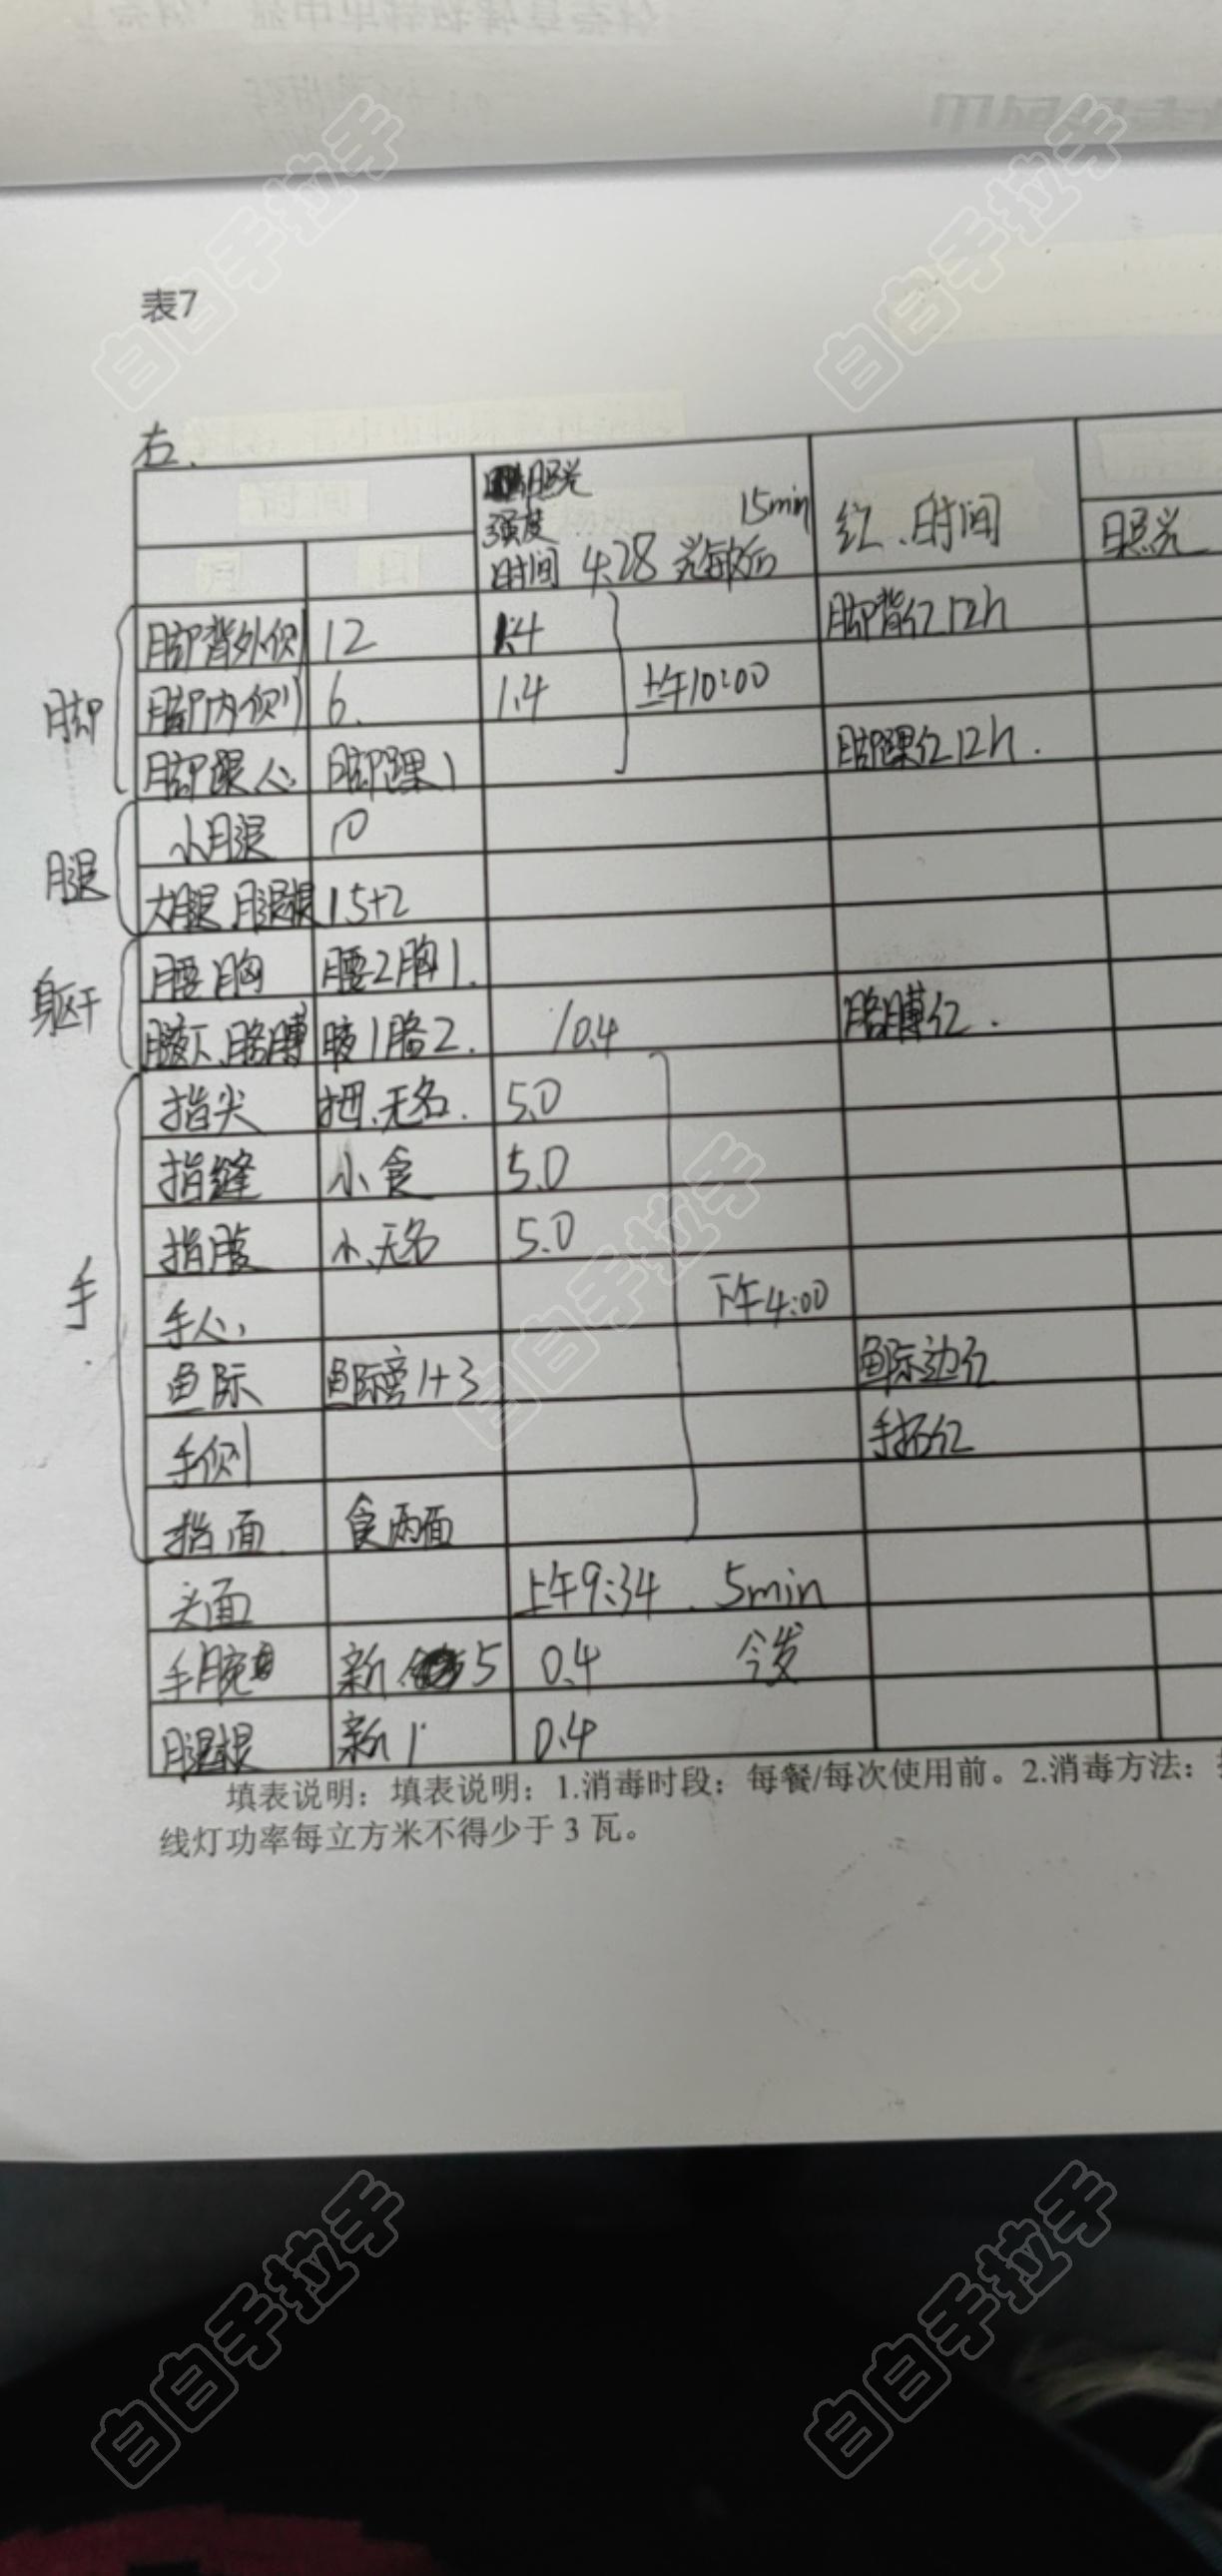 表7
右.
照光
强度 15min
时间 4.28 光敏后
红、时间
照光
脚
脚背外侧 12 1.4 脚背红12h
脚内侧 6. 1.4 上午10:00
脚跟心 脚踝1 脚踝红12h.
腿
小腿 10
大腿、腿根 15+2
躯干
腰胸 腰2胸1.
腋下、胳膊 腋1胳2. 10.4 胳膊红.
手
指尖 拇、无名. 5.0
指缝 小食 5.0
指腹 小、无名 5.0
手心 下午4:00
鱼际 鱼际旁1+3 鱼际边红
手侧 手指红
指面 食两面
头面 上午9:34 . 5min
手腕 新 5 0.4 今发
腿根 新1 0.4
填表说明：填表说明：1.消毒时段：每餐/每次使用前。2.消毒方法：
线灯功率每立方米不得少于 3 瓦。
白白手拉手
白白手拉手
白白手拉手
白白手拉手
白白手拉手